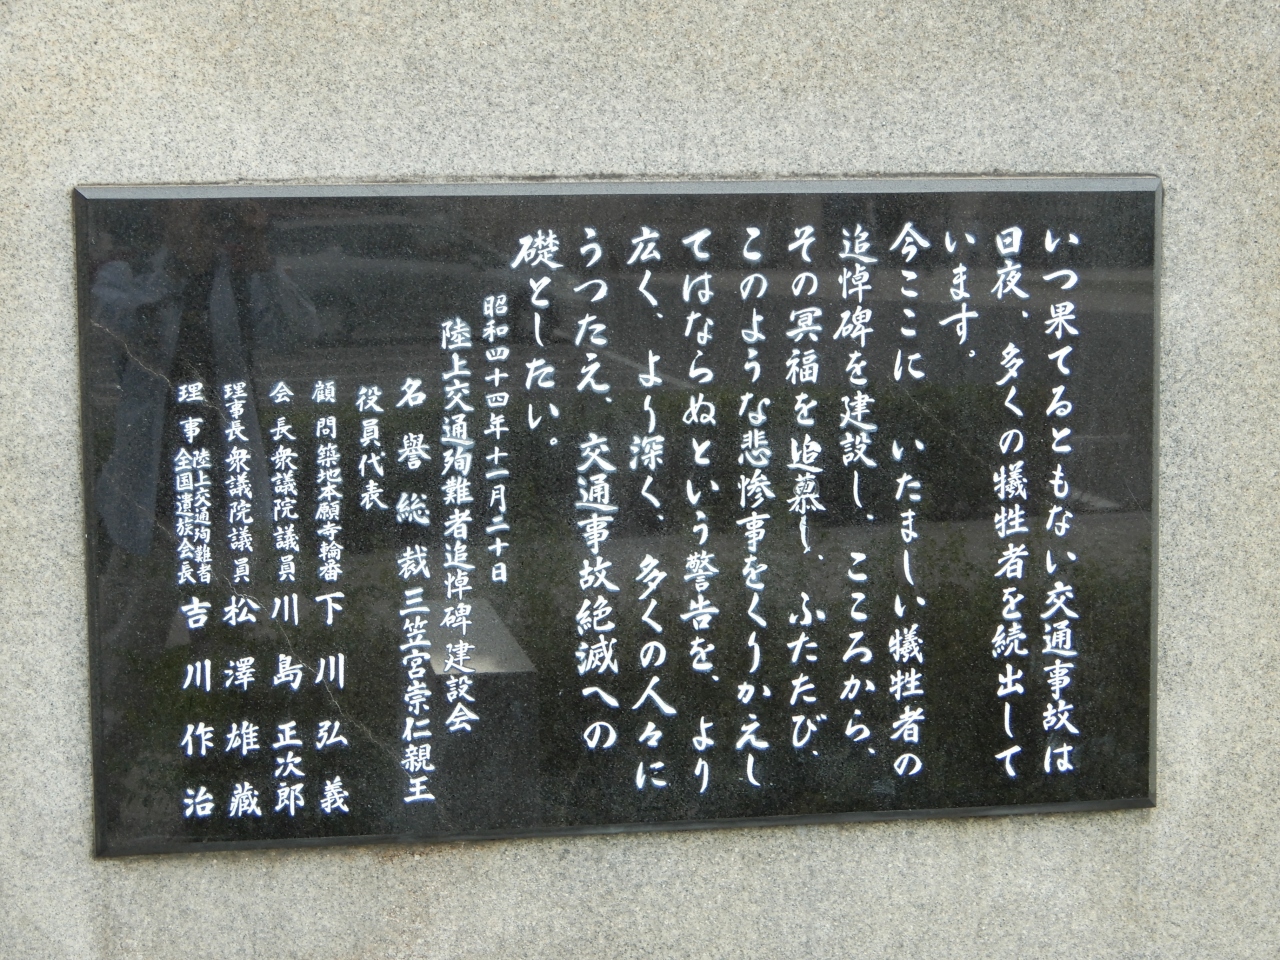 いつ果てるともない交通事故は
日夜、多くの犠牲者を続出して
います。
今ここに いたましい犠牲者の
追悼碑を建設し、こころから、
その冥福を追慕し、ふたたび、
このような悲惨事をくりかえし
てはならぬという警告を、より
広く、より深く、多くの人々に
うつたえ、交通事故絶滅への
礎としたい。
昭和四十四年十一月二十日
陸上交通殉難者追悼碑建設会
名誉総裁三笠宮崇仁親王
役員代表
顧問築地本願寺輪番下川弘義
会長衆議院議員川島正次郎
理事長衆議院議員松澤雄藏
理事陸上交通殉難者全国遺族会長吉川作治